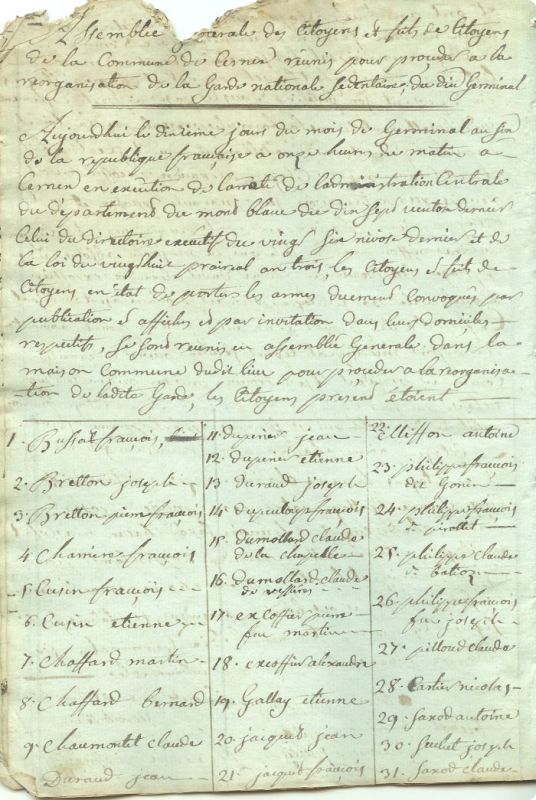 Assemblée générale des Citoyens et fils de Citoyens
de la Commune de Cernex réunis pour proceder a la
reorganisation de la Garde nationale Sedentaire, du dix Germinal
Aujourdhui le dixieme jours du mois de Germinal an six
de la republique française a onze heures du matin a
Cernex en execution de larreté de ladministration Centrale
du departement du mont blanc du dix sept ventose dernier
Celui du directoire executif du vingt six nivose dernier et de
la loi du vingt huit prairial an trois les Citoyens et fils de
Citoyens en état de porter les armes duement Convoqués par
publication et affiches et par invitation dans leurs domiciles
respectifs, Se sont reunis en assemblée Generale dans la
maison Commune dudit lieu pour proceder a la reorganisa-
tion de ladite Garde, les Citoyens présent étoient
1. Bussat françois,
2. Bretton joseph
3. Bretton pierre françois
4 Charriere françois
5. Cusin françois
6. Cusin etienne
7. Chaffard martin
8. Chaffard bernard
9. Chaumontet claude
Duraud jean
11. duperier jean
12. duperier etienne
13. duraud joseph
14. françois
15. dumollard claude
de la chapelle
16. dumollard claude
de
17. excoffier pierre
feu martin
18. excoffier alexandre
19. Gallay etienne
20. jacquet jean
21. jacquet françois
22. Miffon antoine
23. philippe françois
dit Gonin
24. philippe françois
25. philippe claude
26. philippe françois
feu joseph
27. pilloud claude
28. Cartier nicolas
29. Saxod antoine
30. joseph
31. Saxod claude